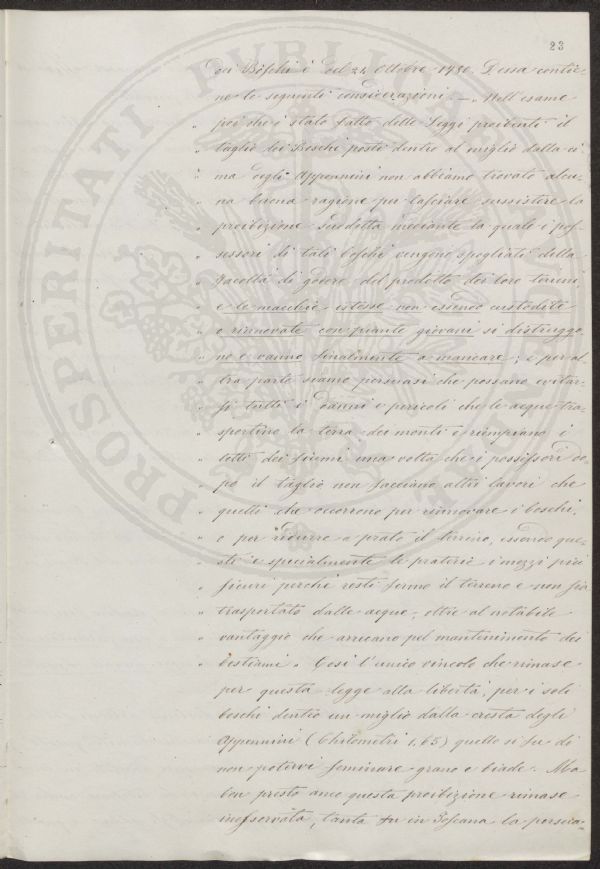 23
dei Boschi è del 24 Ottobre 1780. Dessa contie-
ne le seguenti considerazioni. — „ Nell'esame
„ poi che è stato fatto delle Leggi proibenti il
„ taglio dei Boschi posti dentro al miglio dalla ci-
„ ma degli Appennini non abbiamo trovato alcu-
„ na buona ragione per lasciare sussistere la
„ proibizione suddetta mediante la quale i pos-
„ sessori di tali boschi vengono spogliati della
„ facoltà di godere del prodotto dei loro terreni
„ e le macchie istesse non essendo custodite
„ e rinnovate con piante giovani si distruggo-
„ no e vanno finalmente a mancare; e per al-
„ tra parte siamo persuasi che possano evitar-
„ si tutti i danni e pericoli che le acque tra-
„ sportino la terra dei monti e riempiano i
„ letti dei fiumi una volta che i possessori do-
„ po il taglio non facciano altri lavori che
„ quelli che occorrono per rinnovare i boschi,
„ o per ridurre a prato il terreno, essendo que-
„ sti e specialmente le praterie i mezzi più
„ sicuri perchè resti fermo il terreno e non sia
„ trasportato dalle acque; oltre al notabile
„ vantaggio che arrecano pel mantenimento dei
„ bestiami „ Così l'unico vincolo che rimase
per questa legge alla libertà, per i soli
boschi dentro un miglio dalla cresta degli
Appennini (Chilometri 1,65) quello si fu di
non potervi seminare grano e biade. Ma
ben presto anco questa proibizione rimase
inosservata, tanta fu in Toscana la persua-
PROSPERITATI PUBLICAE